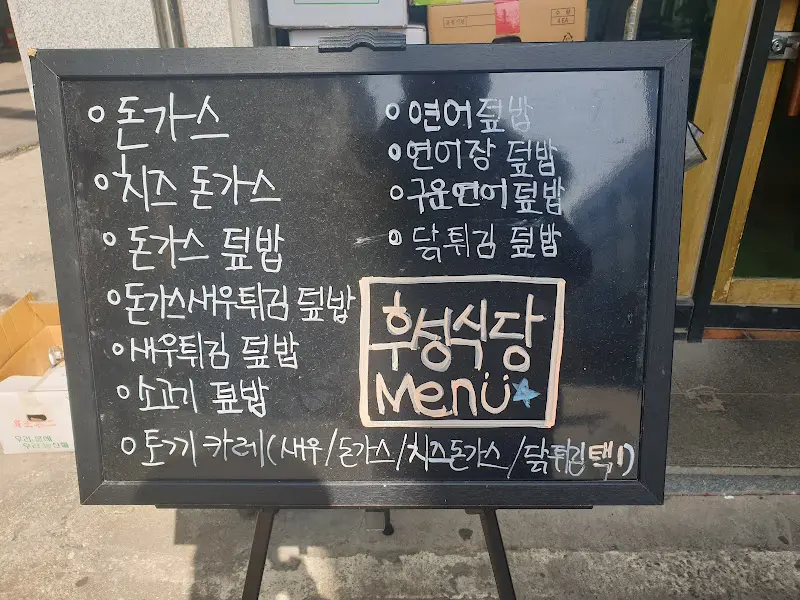 돈가스
치즈 돈가스
돈가스 덮밥
돈가스새우튀김 덮밥
새우튀김 덮밥
소고기 덮밥
연어덮밥
연어장 덮밥
구운연어덮밥
닭튀김 덮밥
후성식당
Menu
토끼 카레(새우/돈가스/치즈돈가스/닭튀김택1)